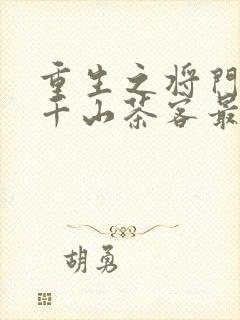 重生之将门
千山茶客最
胡勇